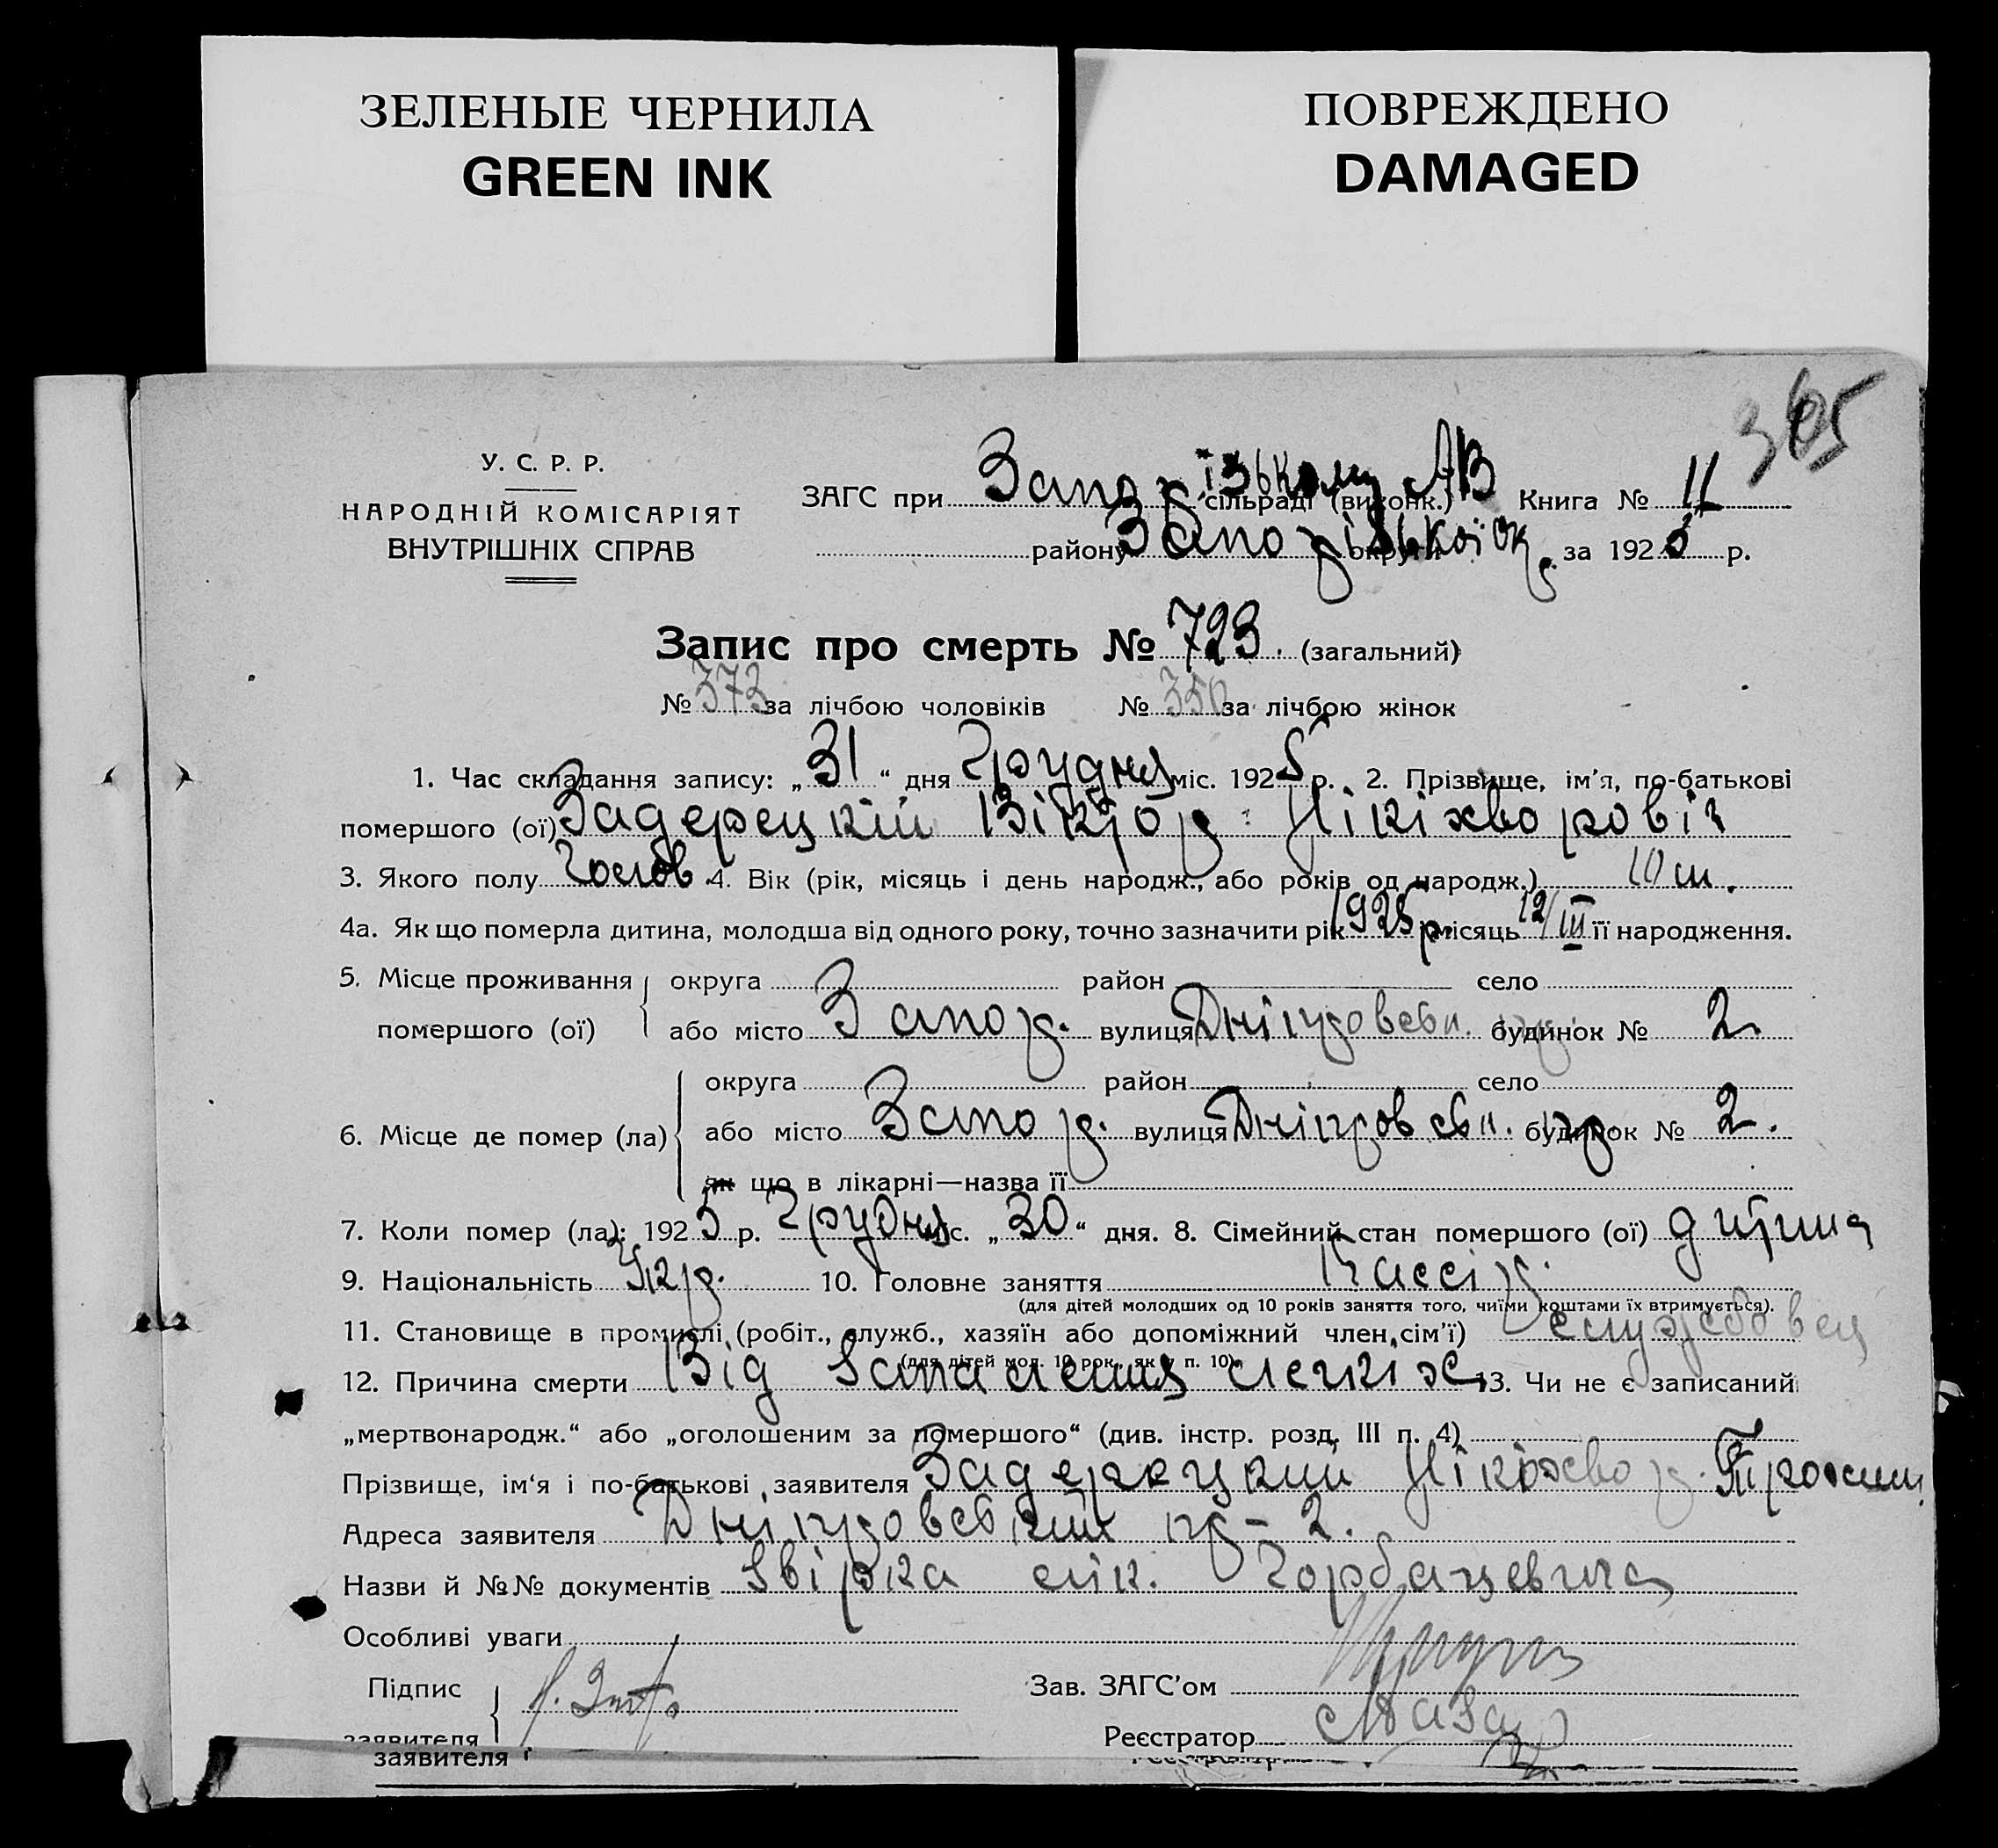 ЗЕЛЕНЫЕ ЧЕРНИЛА
GREEN INK
ПОВРЕЖДЕНО
DAMAGED
365
У. С. Р. Р.
НАРОДНІЙ КОМІСАРІЯТ
ВНУТРІШНІХ СПРАВ
ЗАГС при Запорізькому сільраді (виконк.) Книга № II
району Запорізької ок. округи за 1925 р.
Запис про смерть № 723. (загальний)
№ 373 за лічбою чоловіків № 350 за лічбою жінок
1. Час складання запису: „31“ дня Грудня міс. 1925 р. 2. Прізвище, ім’я, по-батькові
помершого (ої) Задерецкій Віктор Нікіхворовіч
3. Якого полу чолов. 4. Вік (рік, місяць і день народж., або років од народж.) 10 м.
4а. Як що померла дитина, молодша від одного року, точно зазначити рік 1925 р. місяць 12/III її народження.
5. Місце проживання помершого (ої) округа район село
або місто Запор. вулиця Дніпровськ. пр. будинок № 2
6. Місце де помер (ла) округа район село
або місто Запор. вулиця Дніпровськ. пр. будинок № 2.
як що в лікарні—назва її
7. Коли помер (ла): 1925 р. Грудня міс. „30“ дня. 8. Сімейний стан помершого (ої) дитина
9. Національність Укр. 10. Головне заняття Кассір.
(для дітей молодших од 10 років заняття того, чиїми коштами їх втримується).
11. Становище в промислі (робіт., служб., хазяїн або допоміжний член сім’ї) служебовец
(для дітей мол. 10 рок., як у п. 10).
12. Причина смерти Від запалення легкіх 13. Чи не є записаний
„мертвонародж.“ або „оголошеним за помершого“ (див. інстр. розд. III п. 4)
Прізвище, ім‘я і по-батькові заявителя Задерецкий Нікіхвор. Трохим.
Адреса заявителя Дніпровський пр-2.
Назви й №№ документів Звірка лік. Горбацевича
Особливі уваги
Підпис заявителя
Зав. ЗАГС’ом
Реєстратор
заявителя